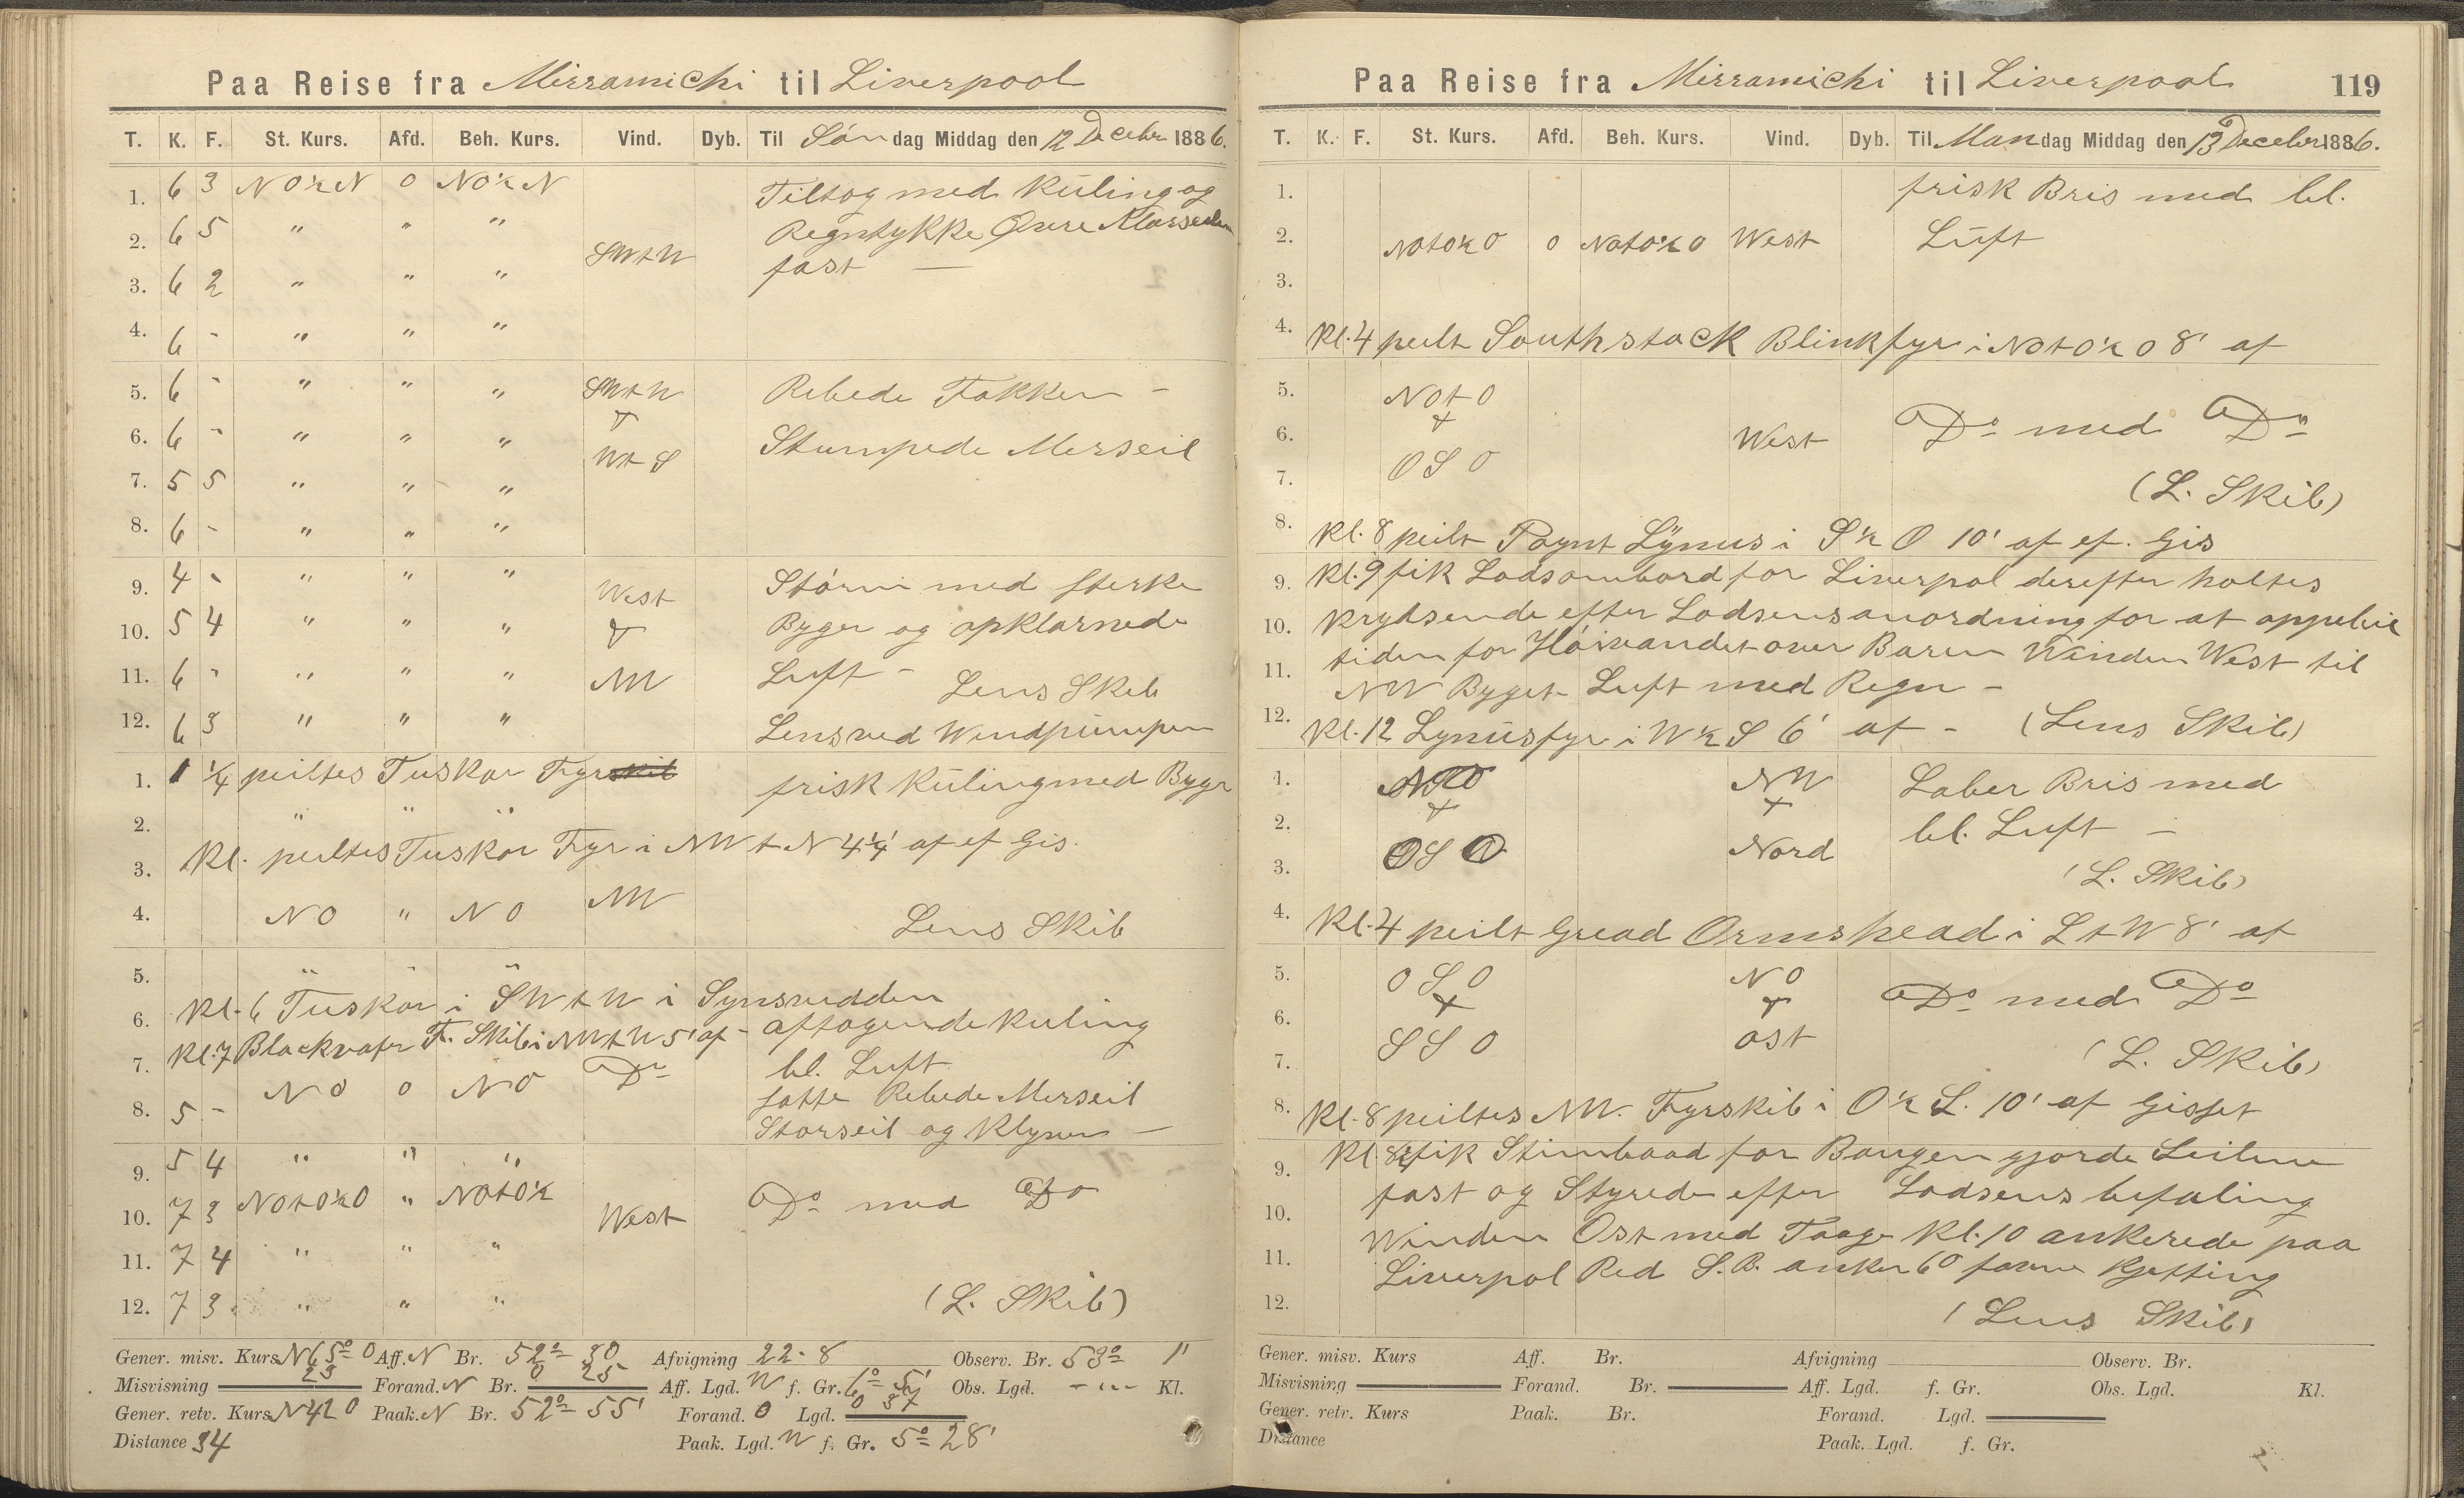 Paa Reise fra Mirramichi til Liverpool
T. K. F. St. Kurs. Afd. Beh. Kurs. Vind. Dyb. Til Søndag Middag den 12 Decebr 1886.
1. 6 3 NO½N 0 NO½N Tiltog med Kuling og
2. 6 5 " " " Regntykke Øvre Mersseilen
SWtW
3. 6 2 " " " fast —
4. 6 - " " "
5. 6 - " " " SWtW Rebede Fokken -
T
6. 6 - " " " WtS Stumpede Merseil
7. 5 5 " " "
8. 6 - " " "
9. 4 - " " " West Storm med sterke
10. 5 4 " " " T Byger og opklarnede
11. 6 - " " " NW Luft - Lens Skib
12. 6 3 " " " Lens ved Windpumpen
1. 1 ¼ peiltes Tuskar Fyrskib frisk Kuling med Bygr
2. " " "
Kl. peiltes Tuskar Fyr i NWtN 4¼' af ef Gis.
3.
NW
4. NO " NO Lens Skib
5. " " "
Kl. 6 Tuskar i SWtW i Synsvidden
6. aftagende Kuling
Kl. 7 Blackvater F. Skib i NWtW 5' af -
7. NO 0 NO Do bl. Luft
8. 5 - satte Rebede Merseil
Storseil og Klyver —
9. 5 4 " " "
10. 7 3 NOtO½O " NOtO½ West Do med Do
11. 7 4 " " "
12. 7 3. " " " (L. Skib)
Gener. misv. Kurs N65°O Aff. N Br. 52° 30 Afvigning 22.8 Observ. Br. 53° 1'
Misvisning 23 Forand. N Br. 0 25 Aff. Lgd. W f. Gr. 6° 5' Obs. Lgd. - ... Kl.
Gener. retv. Kurs N42O Paak. N Br. 52° 55' Forand. O Lgd. 0 37
Distance 34 Paak. Lgd. W f. Gr. 5° 28'
Paa Reise fra Mirramichi til Liverpool 119
T. K. F. St. Kurs. Afd. Beh. Kurs. Vind. Dyb. Til Mandag Middag den 13 Decebr 1886.
1. frisk Bris med bl.
2. NOtO½O 0 NOtO½O West Luft
3.
4. Kl. 4 peilt Southstack Blinkfyr i NOtO½O 8' af
5. NOtO
T
6. West Do med Do
7. OSO (L. Skib)
8. Kl. 8 peilt Poynt Lynus i S½O 10' af ef. Gis
9. Kl. 9 fik Lods ombord for Liverpol derefter holtes
10. Krydsende efter Lodsens anordning for at oppebie
11. tiden for Høivandet over Baren Winden West til
NW Byget Luft med Regn -
12. Kl. 12 Lynusfyr i W½S 6' af - (Lens Skib)
1. NW Laber Bris med
T T
2. bl. Luft -
OSO Nord
3. (L. Skib)
4. Kl. 4 peilt Gread Ormshead i StW 8' af
5. OSO NO
T T Do med Do
6. SSO ost
7. (L. Skib)
8. Kl. 8 peiltes NW. Fyrskib i O½S. 10' af Gisset
9. Kl. 8½ fik Stimbaad for Baugen gjorde Seilene
10. fast og Styrede efter Lodsens befaling
11. Winden Ost med Taage Kl. 10 ankerede paa
Liverpol Red S.B. anker 60 favne Kjetting
12. (Lens Skib)
Gener. misv. Kurs Aff. Br. Afvigning Observ. Br.
Misvisning Forand. Br. Aff. Lgd. f. Gr. Obs. Lgd. Kl.
Gener. retv. Kurs Paak. Br. Forand. Lgd.
Distance Paak. Lgd. f. Gr.